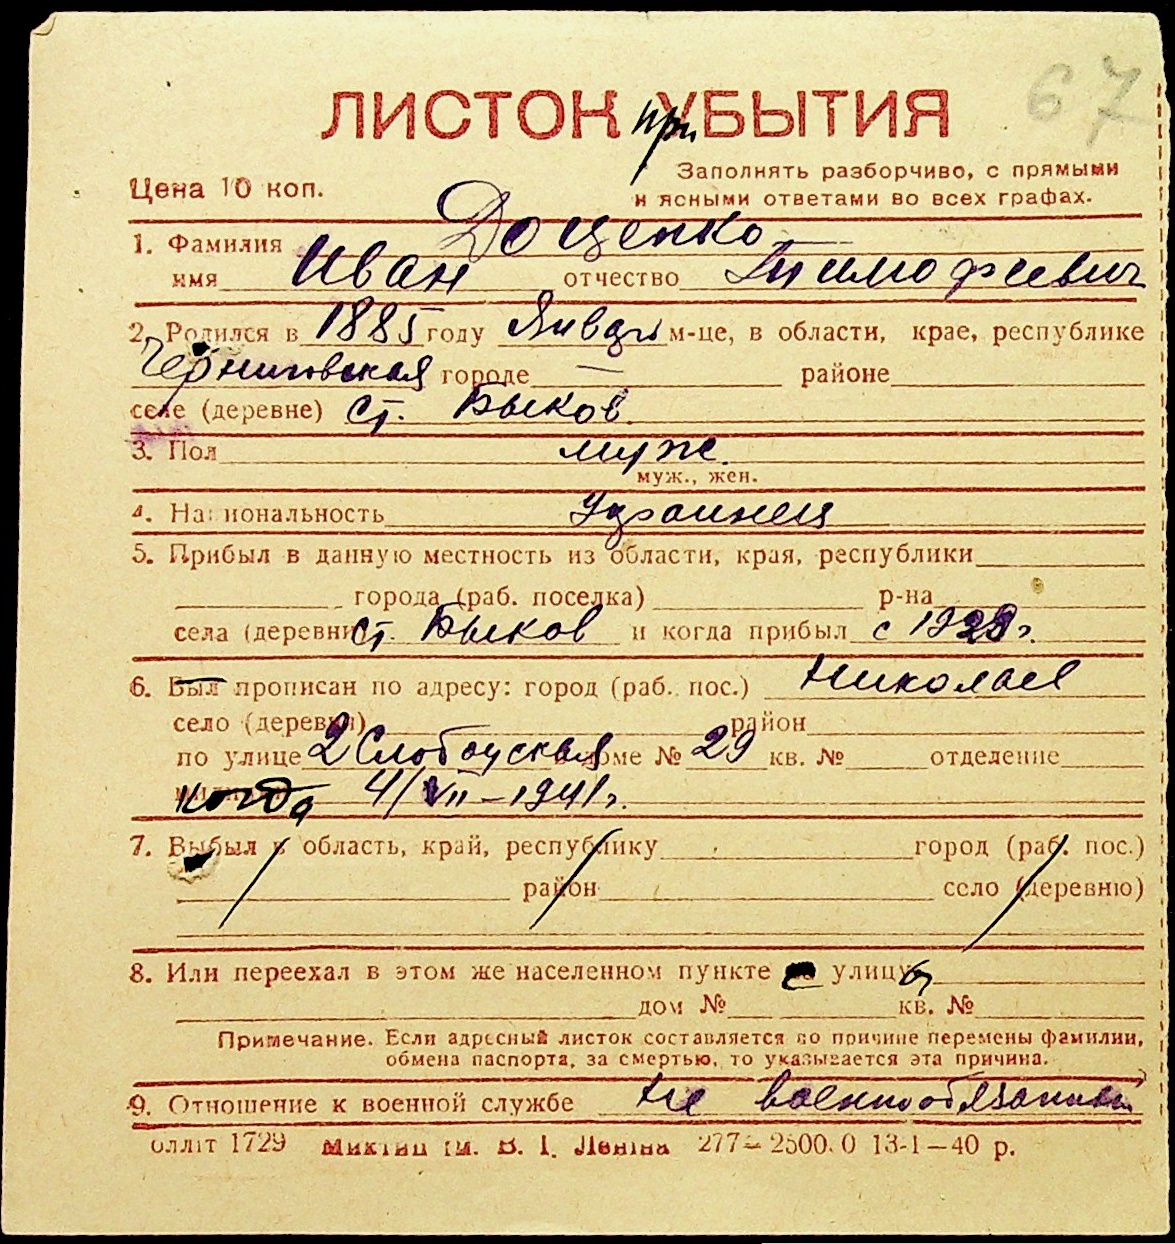 67
ЛИСТОК при УБЫТИЯ
Цена 10 коп.
Заполнять разборчиво, с прямыми
и ясными ответами во всех графах.
1. Фамилия Доценко
имя Иван отчество Тимофеевич
2. Родился в 1885 году Январь м-це, в области, крае, республике
Черниговская городе — районе
селе (деревне) ст. Быков
3. Пол муж.
муж., жен.
4. Национальность Украинец
5. Прибыл в данную местность из области, края, республики
города (раб. поселка) р-на
села (деревни) ст. Быков и когда прибыл с 1929 г.
6. Был прописан по адресу: город (раб. пос.) Николаев
село (деревня) район
по улице 2 Слободская доме № 29 кв. № отделение
когда 4/VII-1941 г.
7. Выбыл в область, край, республику город (раб. пос.)
район село (деревню)
8. Или переехал в этом же населенном пункте с улицы
дом № кв. №
Примечание. Если адресный листок составляется по причине перемены фамилии,
обмена паспорта, за смертью, то указывается эта причина.
9. Отношение к военной службе Не военнообязаный
оллiт 1729 Ленiна 277—2500.0 13-1—40 р.